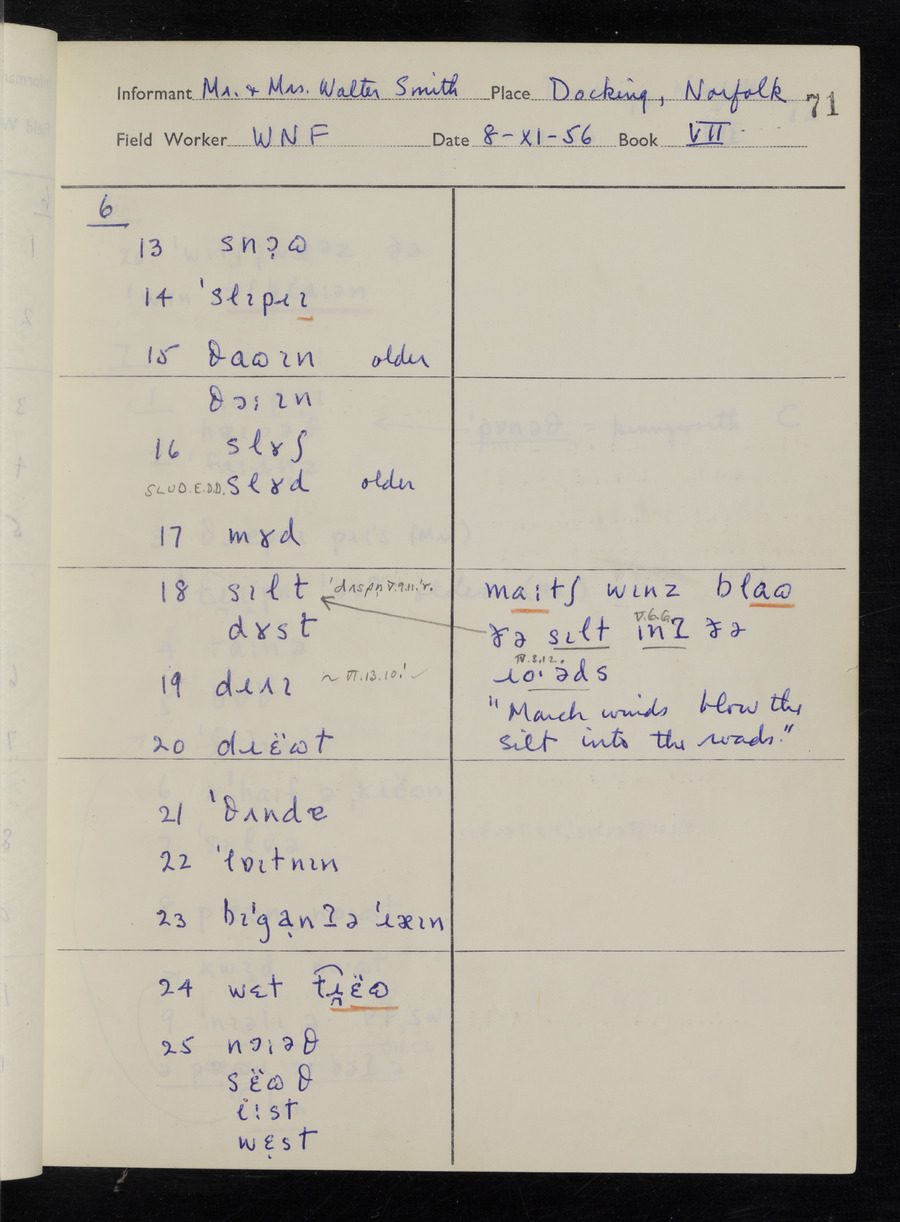 Informant Mr. & Mrs. Walter Smith Place Docking, Norfolk 71
Field Worker WNF Date 8-XI-56 Book VII
6
13 snɔ̣ɷ
14 ˈslɪpɹɪ
15 θaɷɪn older
θɔːɪn
16 slɤʃ
SLUD.E.DD. slɤd older
17 mɤd
18 sɪlt
dɤst
19 dɹʌɪ
20 dɹɛ̈ɷt
21 ˈθʌndɐ
22 ˈlɒɪtnɪn
23 bɪˈgạnʔə ˈɹæɪn
24 wɛt
25 nɔːəθ
sɛ̈ɷθ
iːst
wɛ̣st
maːtʃ wɪnz blaɷ
ðə sɪlt ɪnʔ ðə
V.6.G.
IV.3.12.
ɹoːəds
"March winds blow the
silt into the roads."